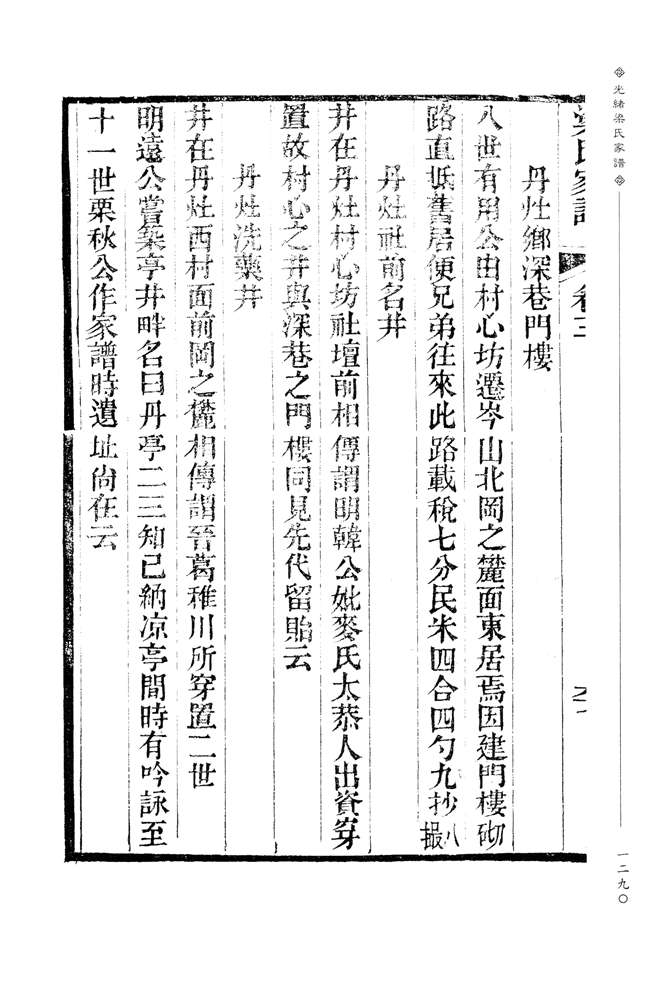 光緒梁氏家譜
一二九〇
梁氏家譜 卷三
丹灶鄉深巷門樓
八世有用公由村心坊遷岑山北岡之麓面東居焉因建門樓砌
路直抵舊居便兄弟往來此路載稅七分民米四合四勺九抄八撮
丹灶社前名井
井在丹灶村心坊社壇前相傳謂明韓公妣麥氏太恭人出資穿
置故村心之井與深巷之門樓同見先代留貽云
丹灶洗藥井
井在丹灶西村面前岡之麓相傳謂晉葛稚川所穿置二世
明遠公嘗築亭井畔名曰丹亭二三知己納凉亭間時有吟詠至
十一世栗秋公作家譜時遺址尚在云